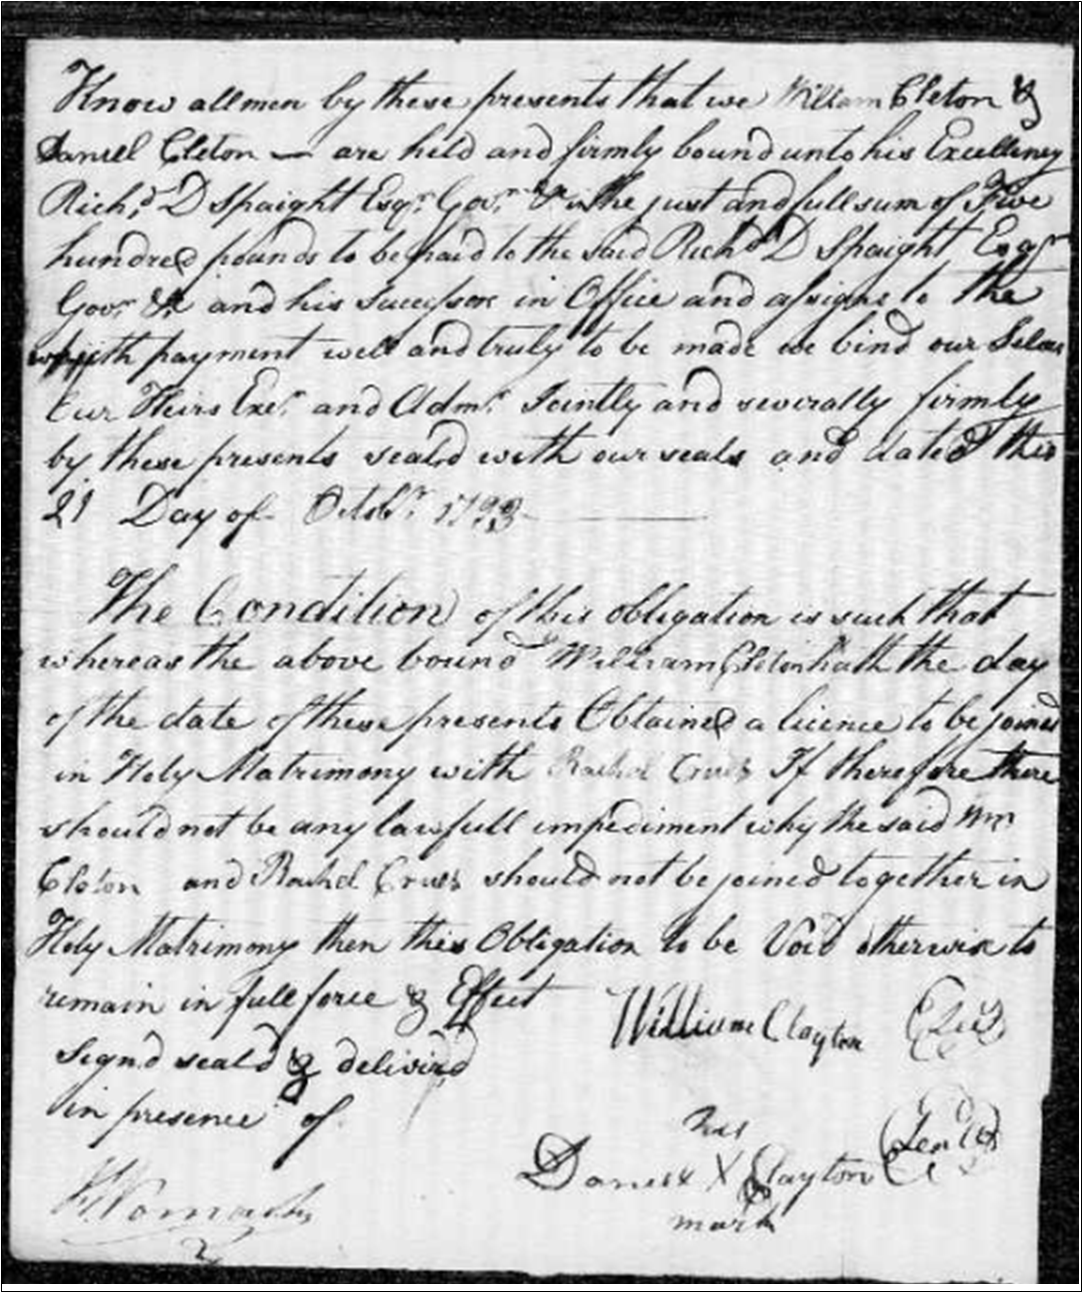 Know all men by these presents that we William Cleton &
Daniel Cleton — are held and firmly bound unto his Excellency
Richd D Spaight Esqr Govr &c in the just and full sum of Five
hundred pounds to be paid to the said Richd D Spaight Esqr
Govr &c and his Successors in Office and assigns to the
which payment well and truly to be made we bind our Selves
Our Heirs Exers and Admrs Jointly and severally firmly
by these presents seald with our seals and dated this
21 Day of Octobr 1793
The Condition of this obligation is such that
whereas the above bound William Cleton hath the day
of the date of these presents Obtained a licence to be joined
in Holy Matrimony with Rachel Cruss If therefore there
should not be any lawfull impediment why the said Wm
Cleton and Rachel Cruss should not be joined together in
Holy Matrimony then this Obligation to be Void otherwise to
remain in full force & Effect
William Clayton Seal
Signd seald & delivird
in presence of
his
Daniel X Clayton Seal
mark
Womack